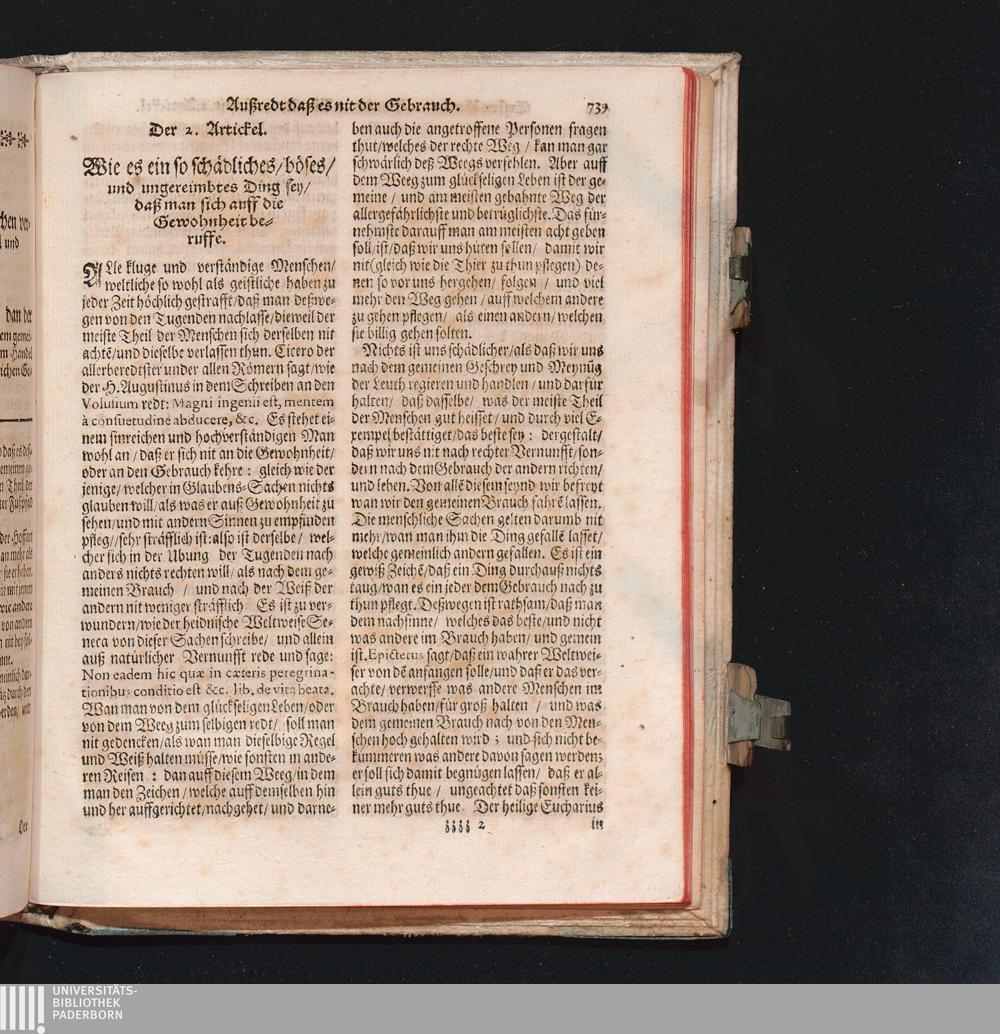 Außredt daß es nit der Gebrauch. 739
Der 2. Artickel.
Wie es ein so schädliches/böses/
und ungereimbtes Ding sey/
daß man sich auff die
Gewohnheit be-
ruffe.
ALle kluge und verständige Menschen/
weltliche so wohl als geistliche haben zu
jeder Zeit höchlich gestrafft/daß man deßwe-
gen von den Tugenden nachlasse/dieweil der
meiste Theil der Menschen sich derselben nit
achtẽ/und dieselbe verlassen thun. Cicero der
allerberedtster under allen Römern sagt/wie
der H. Augustinus in dem Schreiben an den
Volusium redt: Magni ingenii est, mentem
à consuetudine abducere, &c. Es stehet ei-
nem sinreichen und hochverständigen Man
wohl an/ daß er sich nit an die Gewohnheit/
oder an den Gebrauch kehre: gleich wie der
jenige/ welcher in Glaubens-Sachen nichts
glauben will/als was er auß Gewohnheit zu
sehen/und mit andern Sinnen zu empfinden
pfleg//sehr sträfflich ist: also ist derselbe/ wel-
cher sich in der Ubung der Tugenden nach
anders nichts rechten will/ als nach dem ge-
meinen Brauch / und nach der Weiß der
andern nit weniger sträfflich. Es ist zu ver-
wundern/wie der heidnische Weltweise Se-
neca von dieser Sachen schreibe/ und allein
auß natürlicher Vernunfft rede und sage:
Non eadem hic quæ in cæteris peregrina-
tionibus conditio est &c. lib. de vita beata.
Wan man von dem glückseligen Leben/oder
von dem Weeg zum selbigen redt/ soll man
nit gedencken/als wan man dieselbige Regel
und Weiß halten müsse/wie sonsten in ande-
ren Reisen: dan auff diesem Weeg/in dem
man den Zeichen/welche auff demselben hin
und her auffgerichtet/nachgehet/ und darne-
ben auch die angetroffene Personen fragen
thut/welches der rechte Weg / kan man gar
schwärlich deß Weegs verfehlen. Aber auff
dem Weeg zum glückseligen Leben ist der ge-
meine / und am meisten gebahnte Weg der
allergefährlichste und betrüglichste. Das für-
nehmste darauff man am meisten acht geben
soll/ist/daß wir uns hüten sollen/ damit wir
nit (gleich wie die Thier zu thun pflegen) de-
nen so vor uns hergehen/ folgen / und viel
mehr den Weg gehen / auff welchem andere
zu gehen pflegen/ als einen andern/welchen
sie billig gehen solten.
Nichts ist uns schädlicher/als daß wir uns
nach dem gemeinen Geschrey und Meynũg
der Leuth regieren und handlen / und darfür
halten/ daß dasselbe/ was der meiste Theil
der Menschen gut heisset/ und durch viel E-
xempel bestättiget/das beste sey: dergestalt/
daß wir uns nit nach rechter Vernunfft/son-
dern nach dem Gebrauch der andern richten/
und leben. Von allẽ diesem seynd wir befreyt
wan wir den gemeinen Brauch fahrẽ lassen.
Die menschliche Sachen gelten darumb nit
mehr/wan man ihm die Ding gefallẽ lasset/
welche gemeinlich andern gefallen. Es ist ein
gewiß Zeichẽ/daß ein Ding durchauß nichts
taug/wan es ein jeder dem Gebrauch nach zu
thun pflegt. Deßwegen ist rathsam/daß man
dem nachsinne/ welches das beste/und nicht
was andere im Brauch haben/ und gemein
ist. Epictetus sagt/daß ein wahrer Weltwei-
ser von dẽ anfangen solle/und daß er das ver-
achte/ verwerffe was andere Menschen im
Brauch haben/für groß halten / und was
dem gemeinen Brauch nach von den Men-
schen hoch gehalten wird; und sich nicht be-
kümmeren was andere davon sagen werden;
er soll sich damit begnügen lassen/ daß er al-
lein guts thue / ungeachtet daß sonsten kei-
ner mehr guts thue. Der heilige Eucharius
zzzz 2 in
UNIVERSITÄTS-
BIBLIOTHEK
PADERBORN